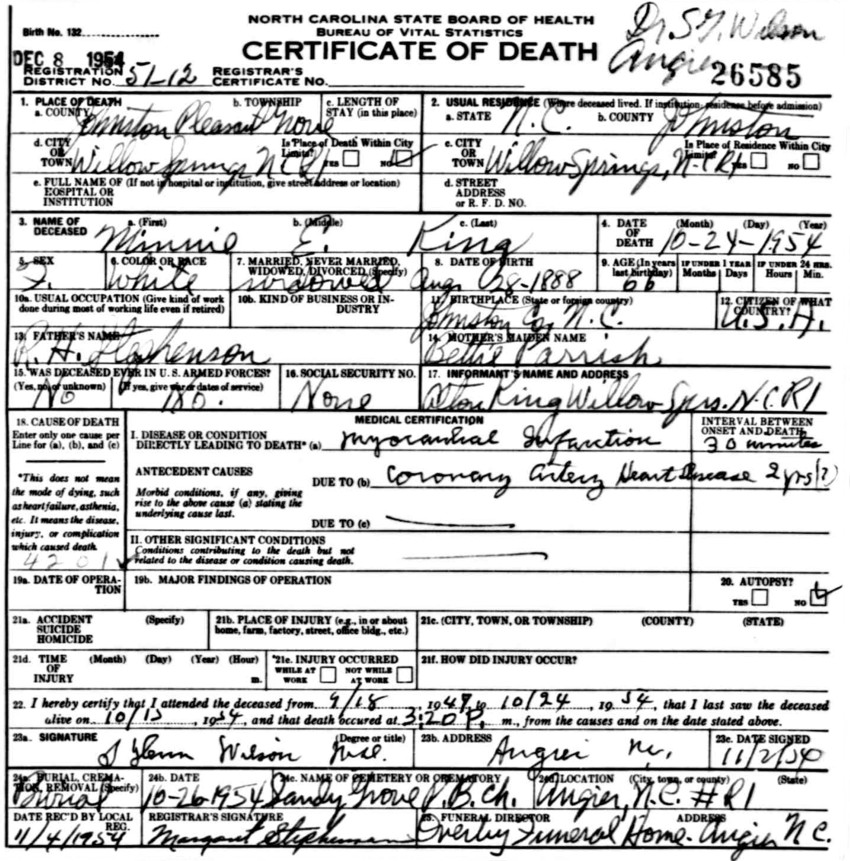 NORTH CAROLINA STATE BOARD OF HEALTH
BUREAU OF VITAL STATISTICS
CERTIFICATE OF DEATH
Birth No. 132
Wilson
Angier
26585
DEC 8 1954
REGISTRATION DISTRICT NO. 51-12 REGISTRAR'S CERTIFICATE No.
1. PLACE OF DEATH
a. COUNTY Johnston
b. TOWNSHIP Pleasant Grove
c. LENGTH OF STAY (in this place)
2. USUAL RESIDENCE (Where deceased lived. If institution, residence before admission)
a. STATE N.C.
b. COUNTY Johnston
d. CITY OR TOWN Willow Springs, N.C.
Is Place of Death Within City Limits? YES NO
c. CITY OR TOWN Willow Springs, N.C. R1
Is Place of Residence Within City Limits? YES NO
e. FULL NAME OF HOSPITAL OR INSTITUTION (If not in hospital or institution, give street address or location)
d. STREET ADDRESS or R. F. D. NO.
3. NAME OF DECEASED
a. (First) Minnie
b. (Middle) E.
c. (Last) King
4. DATE OF DEATH (Month) (Day) (Year) 10-24-1954
5. SEX F.
6. COLOR OR RACE White
7. MARRIED, NEVER MARRIED, WIDOWED, DIVORCED, (Specify) widowed
8. DATE OF BIRTH Aug. 28-1888
9. AGE (In years last birthday) 66
IF UNDER 1 YEAR Months Days
IF UNDER 24 HRS. Hours Min.
10a. USUAL OCCUPATION (Give kind of work done during most of working life even if retired)
10b. KIND OF BUSINESS OR INDUSTRY
11. BIRTHPLACE (State or foreign country) Johnston Co., N.C.
12. CITIZEN OF WHAT COUNTRY? U.S.A.
13. FATHER'S NAME R. H. Stephenson
14. MOTHER'S MAIDEN NAME Bettie Parrish
15. WAS DECEASED EVER IN U. S. ARMED FORCES?
(Yes, no, or unknown) No
(If yes, give war or dates of service) No.
16. SOCIAL SECURITY NO. None
17. INFORMANT'S NAME AND ADDRESS Alton King Willow Sprs. N.C. R1
18. CAUSE OF DEATH
Enter only one cause per Line for (a), (b), and (c)
MEDICAL CERTIFICATION
INTERVAL BETWEEN ONSET AND DEATH
I. DISEASE OR CONDITION DIRECTLY LEADING TO DEATH* (a) Myocardial Infarction 30 minutes
*This does not mean the mode of dying, such as heart failure, asthenia, etc. It means the disease, injury, or complication which caused death.
4201
ANTECEDENT CAUSES
Morbid conditions, if any, giving rise to the above cause (a) stating the underlying cause last.
DUE TO (b) Coronary Artery Heart Disease 2 yrs (?)
DUE TO (c)
II. OTHER SIGNIFICANT CONDITIONS
Conditions contributing to the death but not related to the disease or condition causing death.
19a. DATE OF OPERATION
19b. MAJOR FINDINGS OF OPERATION
20. AUTOPSY?
YES NO
21a. ACCIDENT SUICIDE HOMICIDE (Specify)
21b. PLACE OF INJURY (e.g., in or about home, farm, factory, street, office bldg., etc.)
21c. (CITY, TOWN, OR TOWNSHIP) (COUNTY) (STATE)
21d. TIME OF INJURY (Month) (Day) (Year) (Hour) m.
21e. INJURY OCCURRED WHILE AT WORK NOT WHILE AT WORK
21f. HOW DID INJURY OCCUR?
22. I hereby certify that I attended the deceased from 9/18, 1947, to 10/24, 1954, that I last saw the deceased
alive on 10/15, 1954, and that death occured at 3:20 P. m., from the causes and on the date stated above.
23a. SIGNATURE (Degree or title) Glenn Wilson
23b. ADDRESS Angier N.C.
23c. DATE SIGNED 11/2/54
24a. BURIAL, CREMATION, REMOVAL (Specify) Burial
24b. DATE 10-26-1954
24c. NAME OF CEMETERY OR CREMATORY Sandy Grove P.B. Ch.
24d. LOCATION (City, town, or county) (State) Angier, N.C. #R1
DATE REC'D BY LOCAL REG. 11/4/1954
REGISTRAR'S SIGNATURE Margaret Stephenson
25. FUNERAL DIRECTOR ADDRESS Overby Funeral Home- Angier N.C.